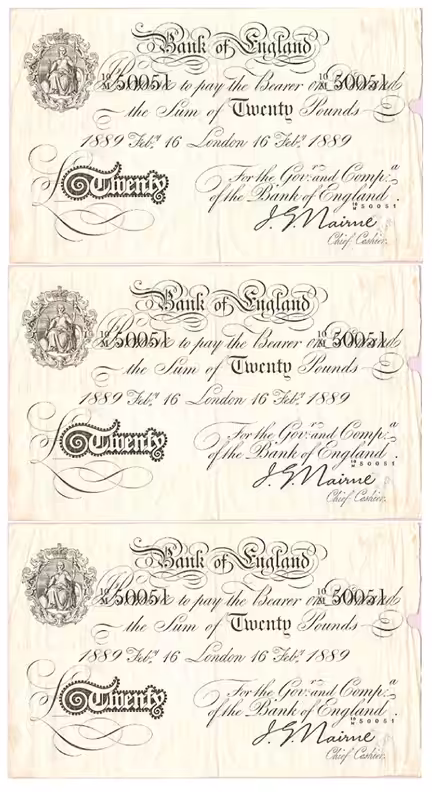 Bank of England
10/M 50051 Promise to pay the Bearer on Demand 10/M 50051
the Sum of Twenty Pounds
1889 Feby. 16 London 16 Feby. 1889
For the Govr. and Compa.
Twenty
of the Bank of England.
10/M 50051
J. G. Nairne
Chief Cashier.
Bank of England
10/M 50051 Promise to pay the Bearer on Demand 10/M 50051
the Sum of Twenty Pounds
1889 Feby. 16 London 16 Feby. 1889
For the Govr. and Compa.
Twenty
of the Bank of England.
10/M 50051
J. G. Nairne
Chief Cashier.
Bank of England
10/M 50051 Promise to pay the Bearer on Demand 10/M 50051
the Sum of Twenty Pounds
1889 Feby. 16 London 16 Feby. 1889
For the Govr. and Compa.
Twenty
of the Bank of England.
10/M 50051
J. G. Nairne
Chief Cashier.